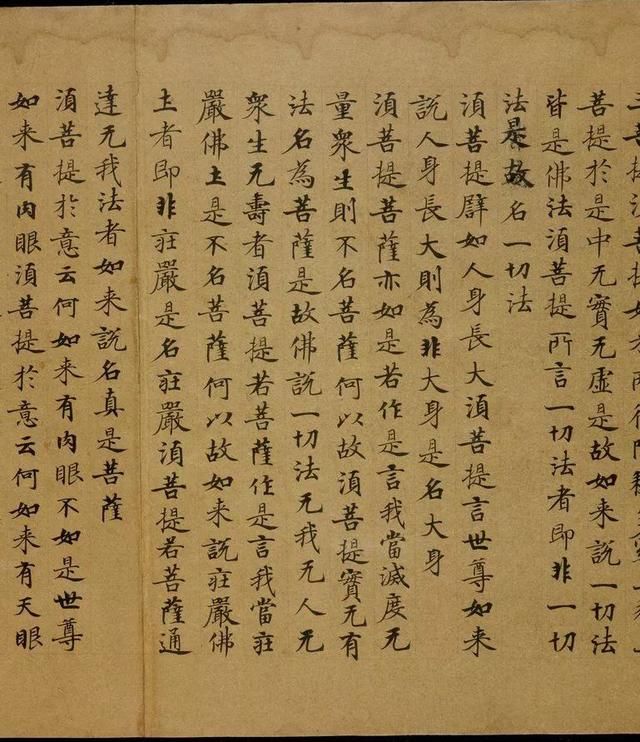 菩提於是中无實无虛是故如来說一切法
皆是佛法須菩提所言一切法者即非一切
法是故名一切法
須菩提譬如人身長大須菩提言世尊如来
說人身長大則為非大身是名大身
須菩提菩薩亦如是若作是言我當滅度无
量衆生則不名菩薩何以故須菩提實无有
法名為菩薩是故佛說一切法无我无人无
衆生无壽者須菩提若菩薩作是言我當莊
嚴佛土是不名菩薩何以故如来說莊嚴佛
土者即非莊嚴是名莊嚴須菩提若菩薩通
達无我法者如来說名真是菩薩
須菩提於意云何如来有肉眼不如是世尊
如来有肉眼須菩提於意云何如来有天眼